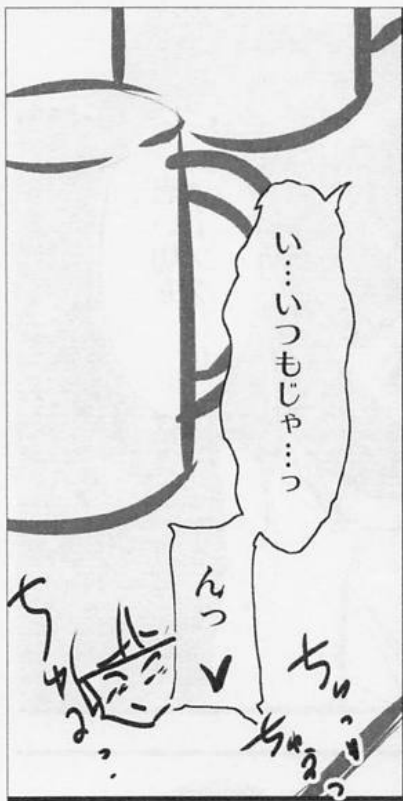 い…いつもじゃ…っ
んっ
ちゅっ
ちゅえっ
ちゅるっ